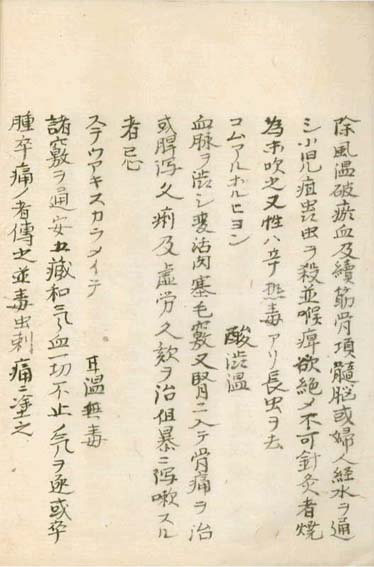 除風温破瘀血及續筋骨項髓脳或婦人経水ヲ通
シ小児疳蟲虫ヲ殺並喉痺欲絶〆不可針灸者焼
為末吹之又性ハ平無毒アリ長虫ヲ去
コムアルホルヒヨン 酸渋温
血脉ヲ渋シ変活肉塞毛竅又腎ニ入テ骨痛ヲ治
或脾泻久痢及虚労久欬ヲ治但暴ニ泻嗽スル
者忌
ステウアキスカラメイテ 耳温無毒
諸竅ヲ通安五藏和気血一切不止気ヲ逐或卒
腫卒痛ノ者傅之並毒虫刺痛ニ塗之